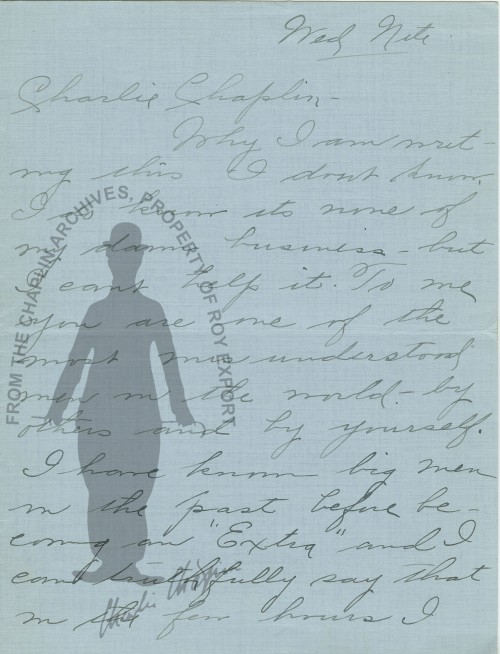 Wed Nite.
Charlie Chaplin -
Why I am writ-
ing this I dont know.
I know its none of
my damn business - but
I cant help it. To me
you are one of the
most misunderstood
men in the world - by
others and by yourself.
I have known big men
in the past before be-
coming an "Extra" and I
can truthfully say that
in the few hours I
FROM THE CHAPLIN ARCHIVES, PROPERTY OF ROY EXPORT
Charlie Chaplin